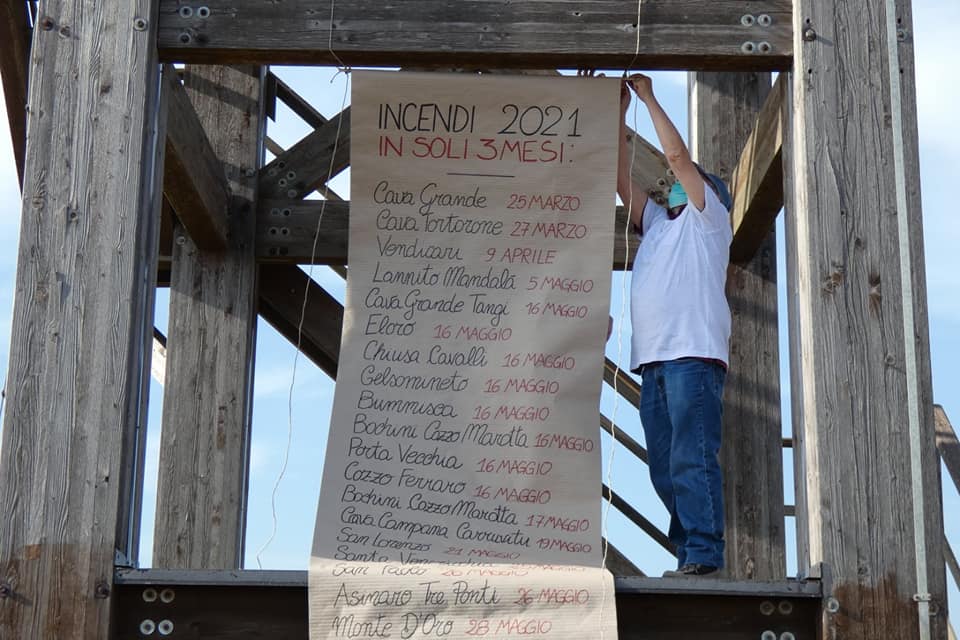 INCENDI 2021
IN SOLI 3 MESI:
Cava Grande 25 MARZO
Cava Tortorone 27 MARZO
Vendicari 9 APRILE
Lannito Mandalá 5 MAGGIO
Cava Grande Tangi 16 MAGGIO
Eloro 16 MAGGIO
Chiusa Cavalli 16 MAGGIO
Gelsomineto 16 MAGGIO
Bummisca 16 MAGGIO
Bochini Cozzo Marotta 16 MAGGIO
Porta Vecchia 16 MAGGIO
Cozzo Ferraro 16 MAGGIO
Bochini Cozzo Marotta 17 MAGGIO
Cava Campana Carrusatu 19 MAGGIO
San Lorenzo 21 MAGGIO
San Paolo 26 MAGGIO
Asinaro Tre Ponti 26 MAGGIO
Monte D'Oro 28 MAGGIO